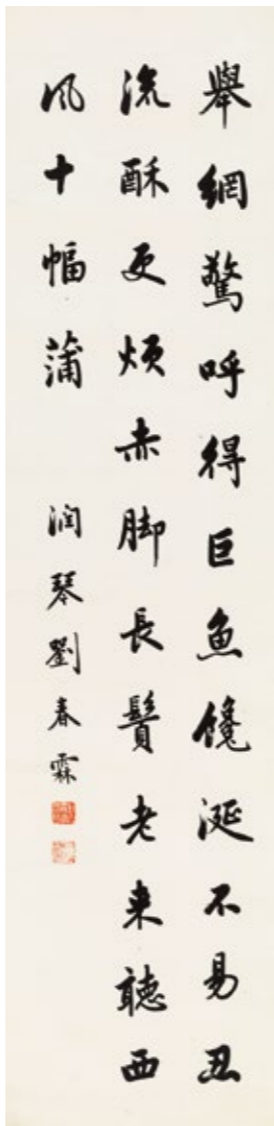 舉網驚呼得巨魚饞涎不易丑
流酥更煩赤脚長鬢老來聽西
風十幅蒲
潤琴劉春霖